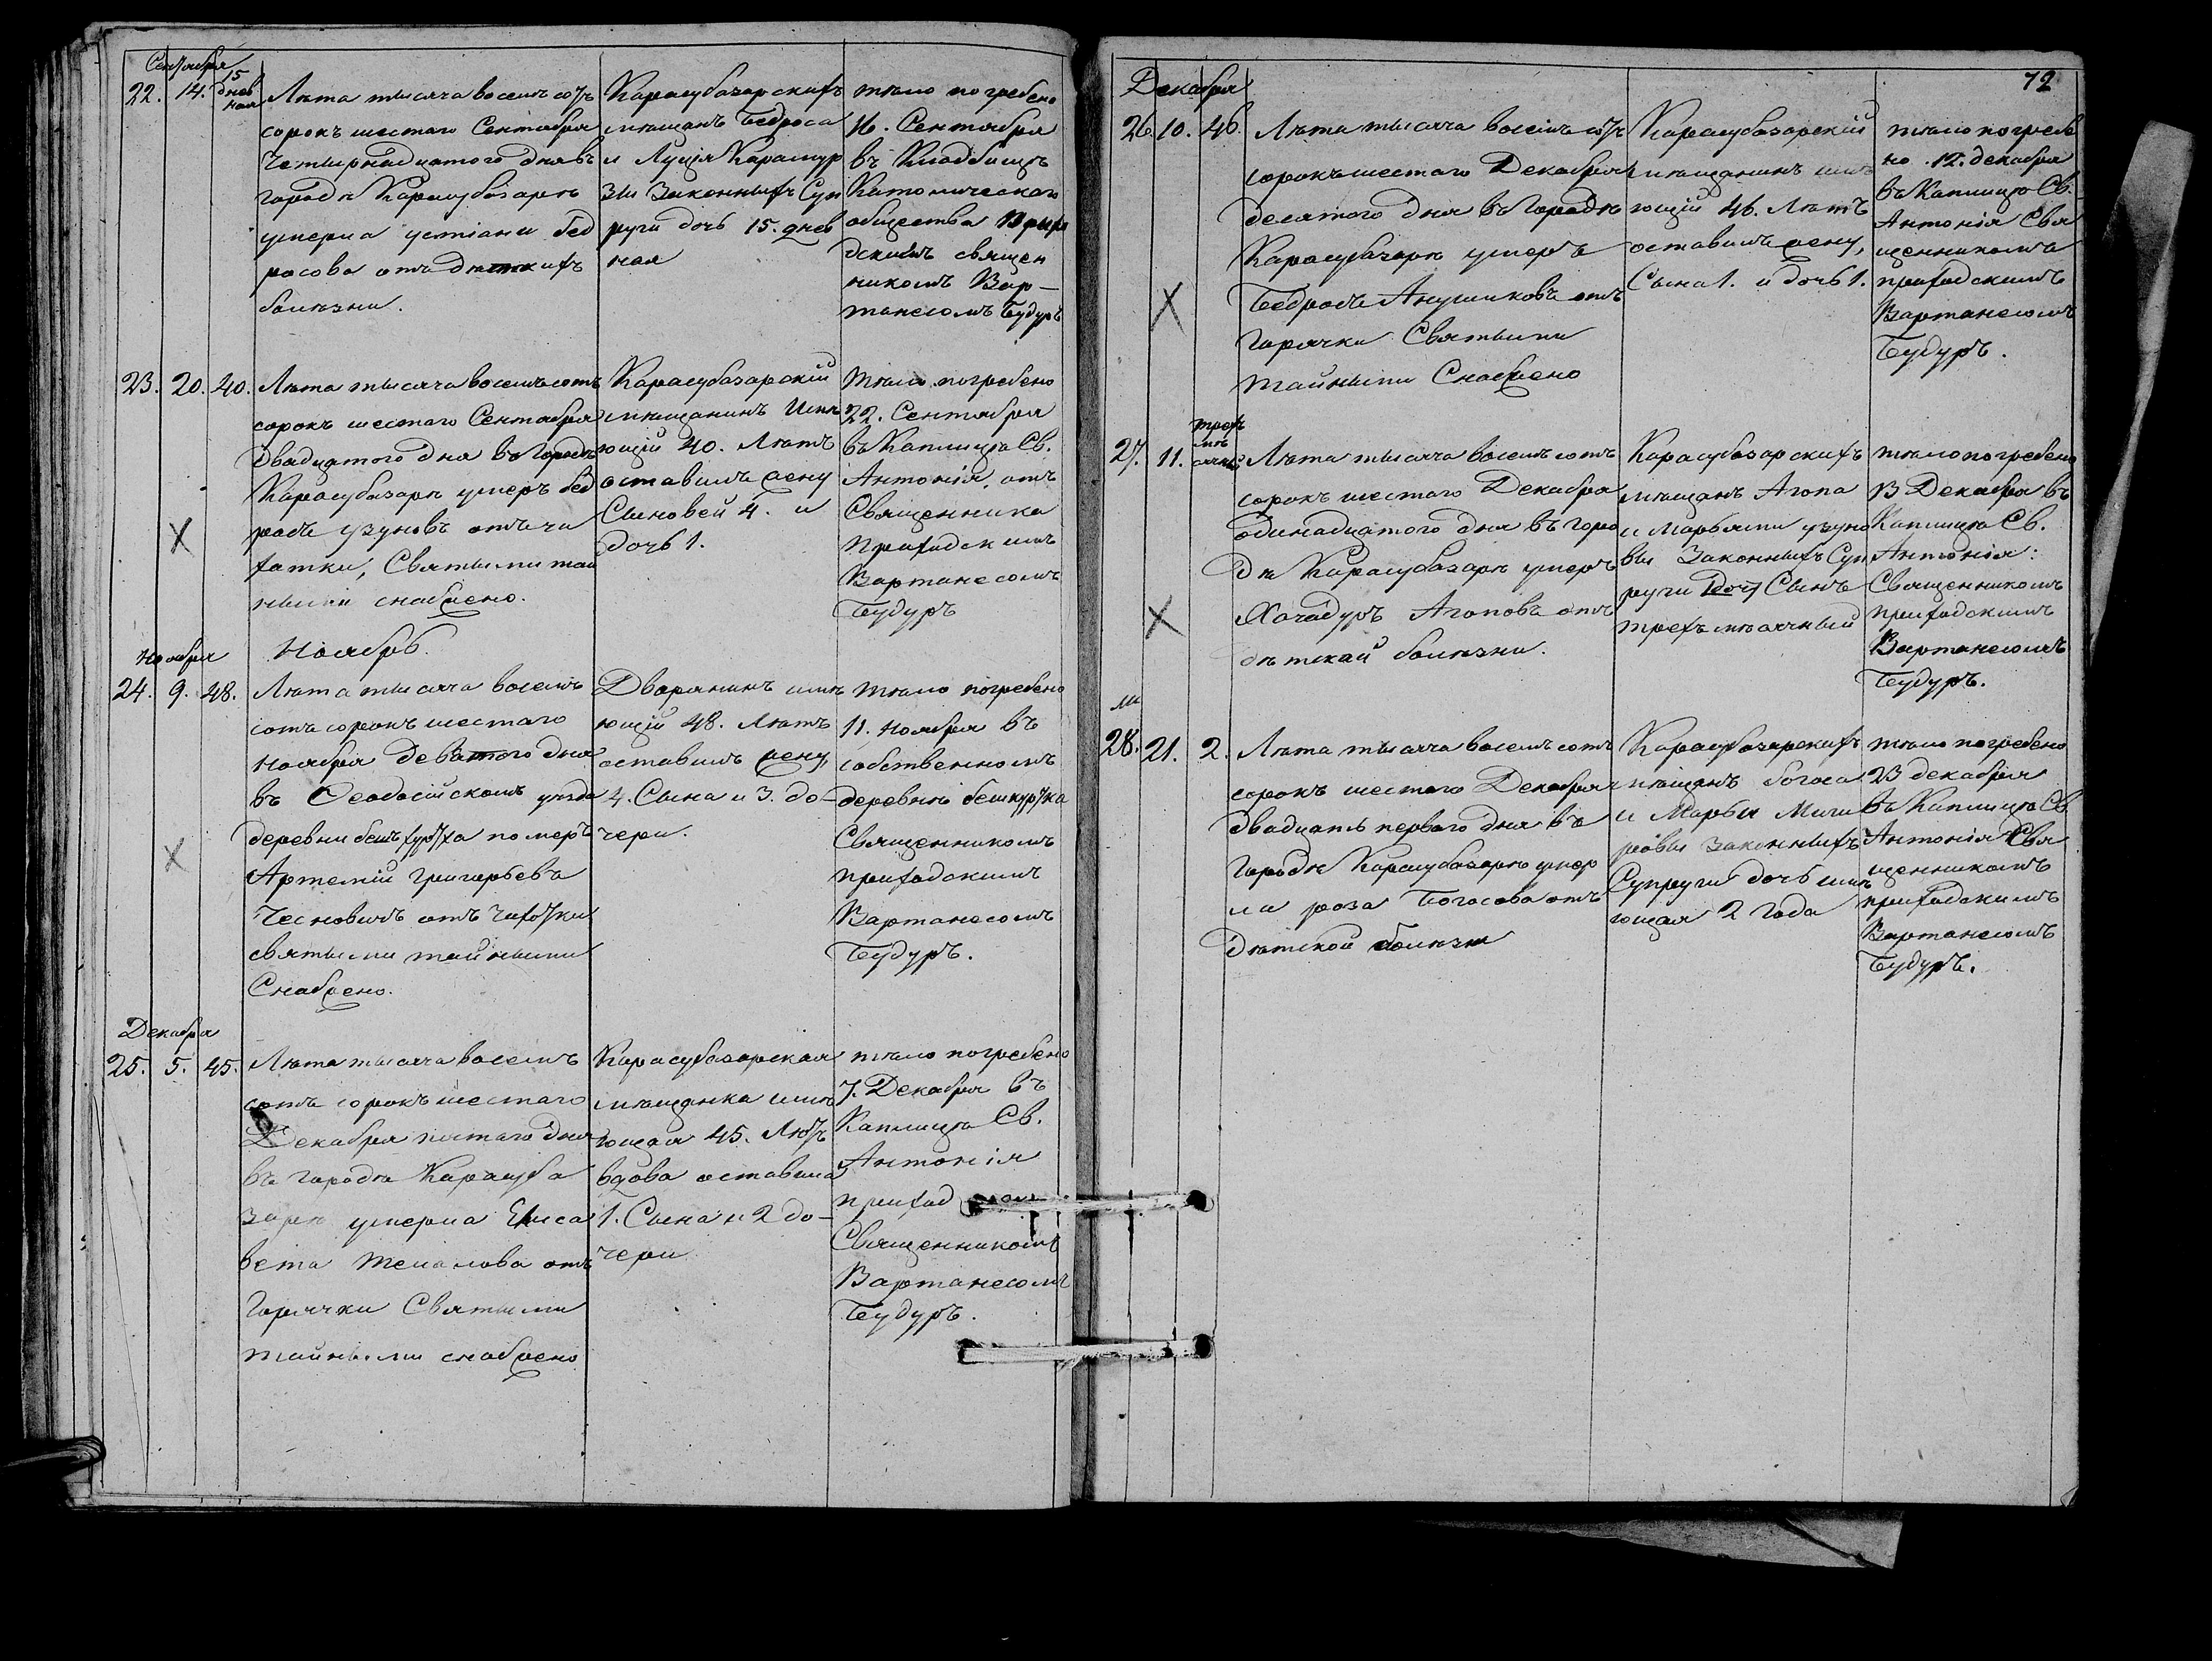 Сентября
22. 14. 15 днев ная
Лѣта тысяча восемъ сотъ
сорокъ шестаго Сентября
Четырнадцатого дня въ
городѣ Карасубазарѣ
умерла устіани бед
росова отъ дѣтскихъ
болѣзни.
Карасубазарскихъ
мѣщанъ Бедроса
и Луція Карамур
зы Законныхъ Суп
руги дочь 15. днев
ная
тѣло погребено
16. Сентября
въ Кладбищѣ
Католическаго
общества
священ
никомъ Вар-
танесомъ Будуръ
23. 20. 40.
Лѣта тысяча восемъ сотъ
сорокъ шестаго Сентября
двадцатого дня въ Городѣ
Карасубазарѣ умеръ бед
росъ узуновъ отъ ча
хатки, Святыми тай
ными снабжено.
Карасубазарскій
мѣщанинъ Имѣ
ющій 40. Лѣтъ
оставилъ жену
Сыновей 4. и
дочь 1.
Тѣло погребено
22. Сентября
въ Каплицѣ Св.
Антонія. отъ
Священника
Приходскимъ
Вартанесомъ
Будуръ
Ноября
Ноябрь.
24. 9. 48.
Лѣта тысяча восемъ
сотъ сорокъ шестаго
Ноября деватого дня
въ Ѳеодосійскомъ уѣзда
деревни бешъ хуртха померъ
Артемій Григорьевъ
Чесновимъ отъ чихотки
святыми тайными
Снабжено.
Дворянинъ имѣ
ющій 48. Лѣтъ
оставилъ жену,
4. Сына и 3. до-
чери.
тѣло погребено
11. Ноября въ
собственномъ
деревню бешкуртка
Священникомъ
приходскимъ
Вартанесомъ
Будуръ.
Декабря
25. 5. 45.
Лѣта тысяча восемъ
сотъ сорокъ шестаго
Декабря пятаго дня
въ городѣ Карасуба
зарѣ умерла Елиса
вета отъ
Горячки Святыми
тайными снабжено
Карасубазарская
мѣщанка имѣ
ющая 45. Лѣтъ
вдова оставила
1. Сына и 2 до-
чери
тѣло погребено
7. Декабря въ
Каплицѣ Св.
Антонія
приход
Священникомъ
Вартанесомъ
Будуръ.
72
Декабря
26. 10. 46.
Лѣта тысяча восемъ сотъ
сорокъ шестаго Декабря
десятого дня въ Городѣ
Карасубазарѣ умеръ
Бедросъ Анушиковъ отъ
Горячки Святыми
тайными Снабжено
Карасубазарскій
мѣщанинъ имѣ
ющій 46. Лѣтъ
оставилъ жену,
Сына 1. и дочь 1.
тѣло погребе
но 12. декабря
въ Каплицѣ Св.
Антонія Свя
щенникомъ
приходскимъ
Вартанесомъ
Будуръ.
27. 11. трехъ мѣ сячный
Лѣта тысяча восемъ сотъ
сорокъ шестаго Декабря
одинадцатого дня въ горо
дѣ Карасубазарѣ умеръ
Хачадуръ Агоповъ отъ
дѣтскай болѣзни.
Карасубазарскихъ
мѣщанъ Агопа
и Марьями узуно
вы Законныхъ Суп
руги Сынъ
трехъ мѣсячный
тѣло погребено
13 Декабря въ
Каплицѣ Св.
Антонія:
Священникомъ
приходскимъ
Вартанесомъ
Будуръ.
28. 21. 2.
Лѣта тысяча восемъ сотъ
сорокъ шестаго Декабря
двадцать перваго дня въ
Городѣ Карасубазарѣ умер
ла роза Богосова отъ
дѣтской болѣзни
Карасубазарскихъ
мѣщанъ богоса
и Марьи Мин
ровы законныхъ
Супруги дочь имѣ
ющая 2 года
тѣло погребено
23 декабрія
въ Каплицѣ Св
Антонія Свя
щенникомъ
приходскимъ
Вартанесомъ
Будуръ.